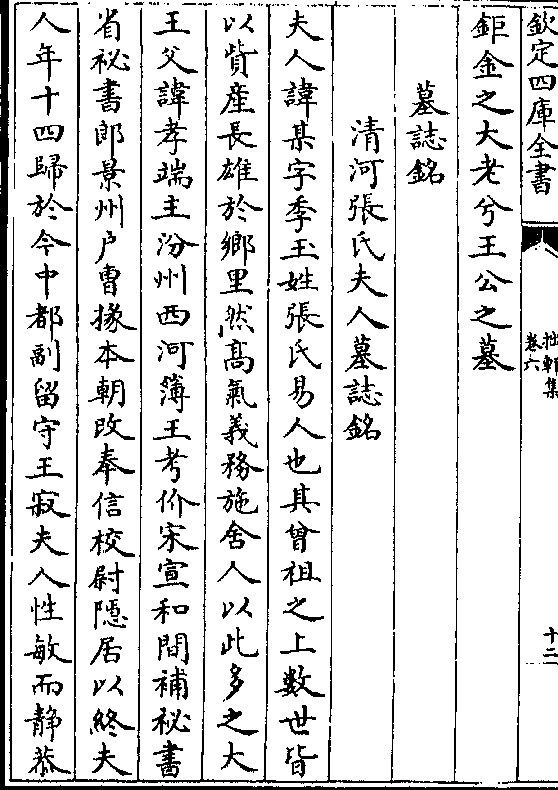 欽定四庫全書
拙軒集
卷六
十二
鉅金之大老兮王公之墓
墓誌銘
清河張氏夫人墓誌銘
夫人諱某字季玉姓張氏易人也其曾祖之上數世皆
以貲產長雄於鄉里然高氣義務施舍人以此多之大
王父諱孝端主汾州西河簿王考价宋宣和間補祕書
省祕書郎景州户曹掾本朝改奉信校尉隱居以終夫
人年十四歸於今中都副留守王寂夫人性敏而静恭